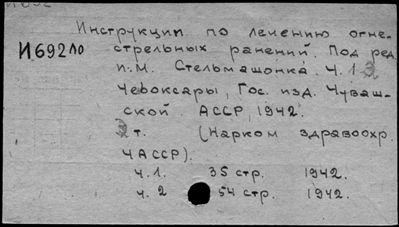 Инструкции по лечению огне-
И692ло стрельных ранений. Под ред.
п.М. Стельмашонка. Ч. 1
Чебоксары, Гос. изд. Чуваш-
ской АССР, 1942.
2 т. (Нарком здравоохр.
ЧАССР).
ч. 1. 35 стр. 1942.
ч. 2 54 стр. 1942.